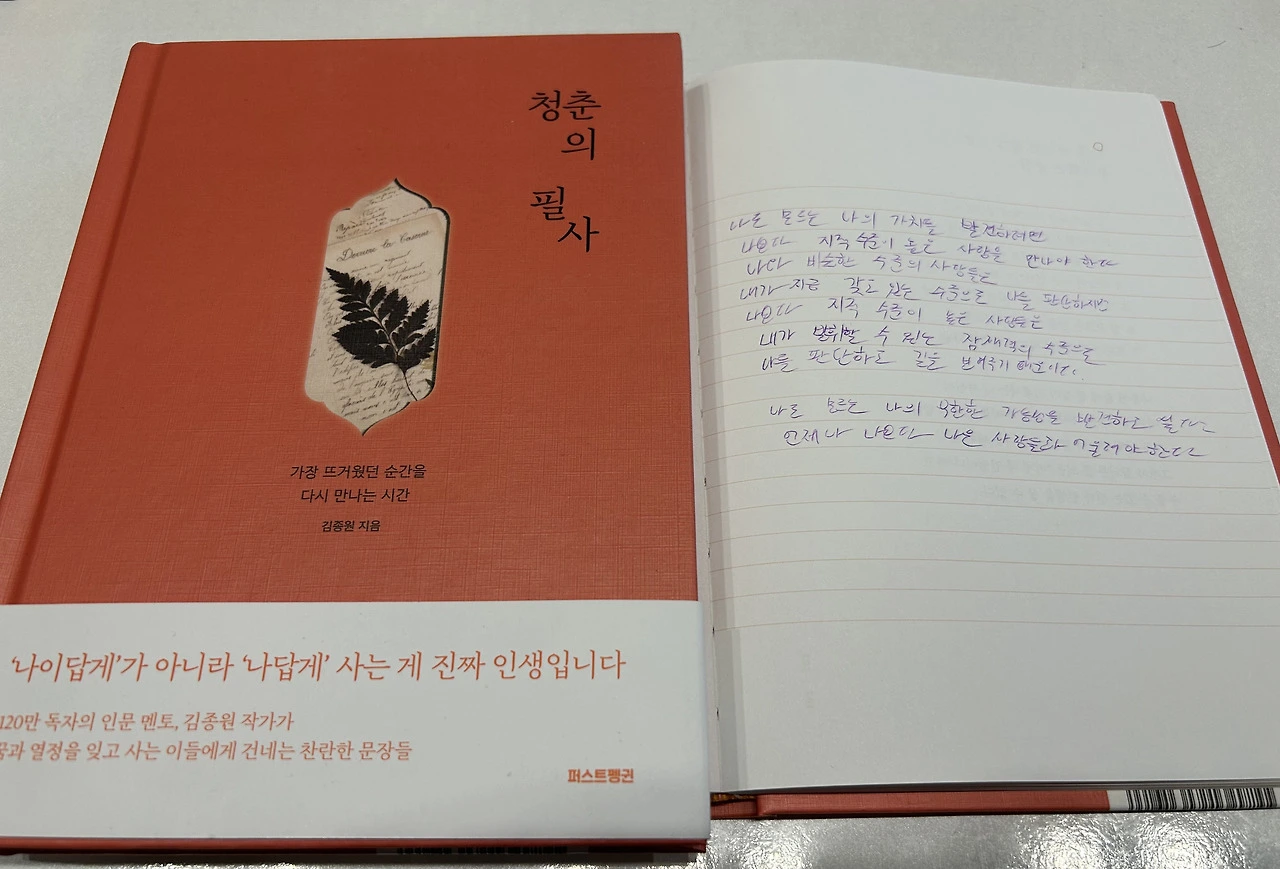 청춘
의
필
사
가장 뜨거웠던 순간을
다시 만나는 시간
김종원 지음
'나이답게'가 아니라 '나답게' 사는 게 진짜 인생입니다
120만 독자의 인문 멘토, 김종원 작가가
꿈과 열정을 잊고 사는 이들에게 건네는 찬란한 문장들
퍼스트펭귄
나도 모르는 나의 가치를 발견하려면
나보다 지적 수준이 높은 사람을 만나야 한다
나와 비슷한 수준의 사람들은
내가 지금 갖고 있는 수준으로 나를 판단하지만
나보다 지적 수준이 높은 사람들은
내가 발휘할 수 있는 잠재력의 수준으로
나를 판단하고 길을 보여주기 때문이다.
나도 모르는 나의 무한한 가능성을 발견하고 싶다면
언제나 나보다 나은 사람들과 어울려야 한다